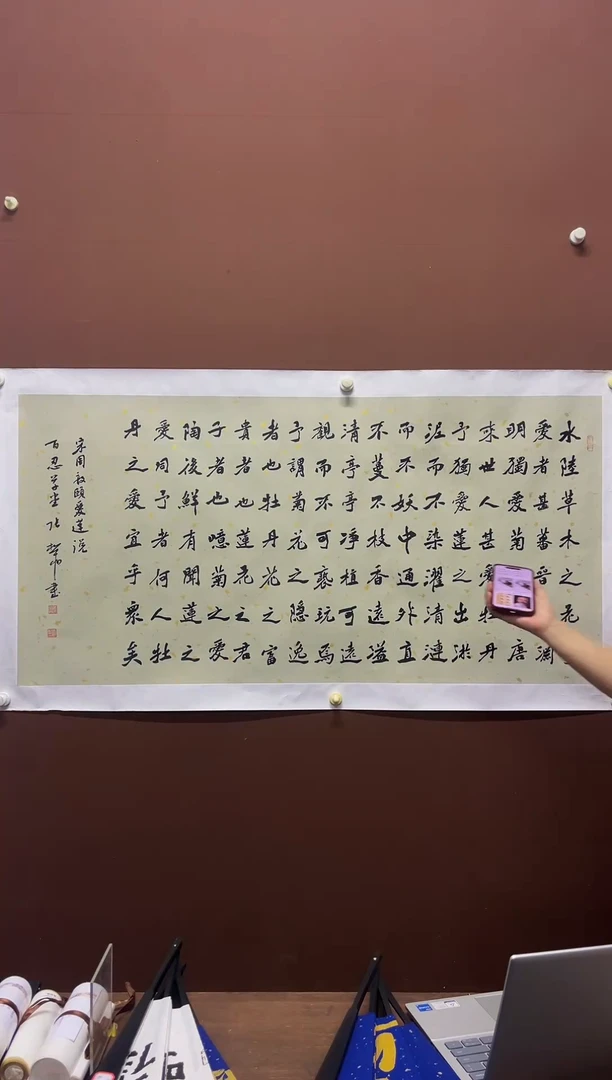 水陸草木之花
愛者甚蕃晋淵
明獨愛菊唐
来世人甚愛牡丹
予獨愛蓮之出淤
泥而不染濯清漣
而不妖中通外直
不蔓不枝香遠溢
清亭亭净植可遠
觀而不可褻玩焉
予謂菊花之隐逸
者也牡丹花之富
貴者也蓮花之君
子者也噫菊之愛
陶後鮮有聞蓮之
愛同予者何人牡
丹之愛宜乎衆矣
宋周敦頤愛蓮說
百忍草堂张書